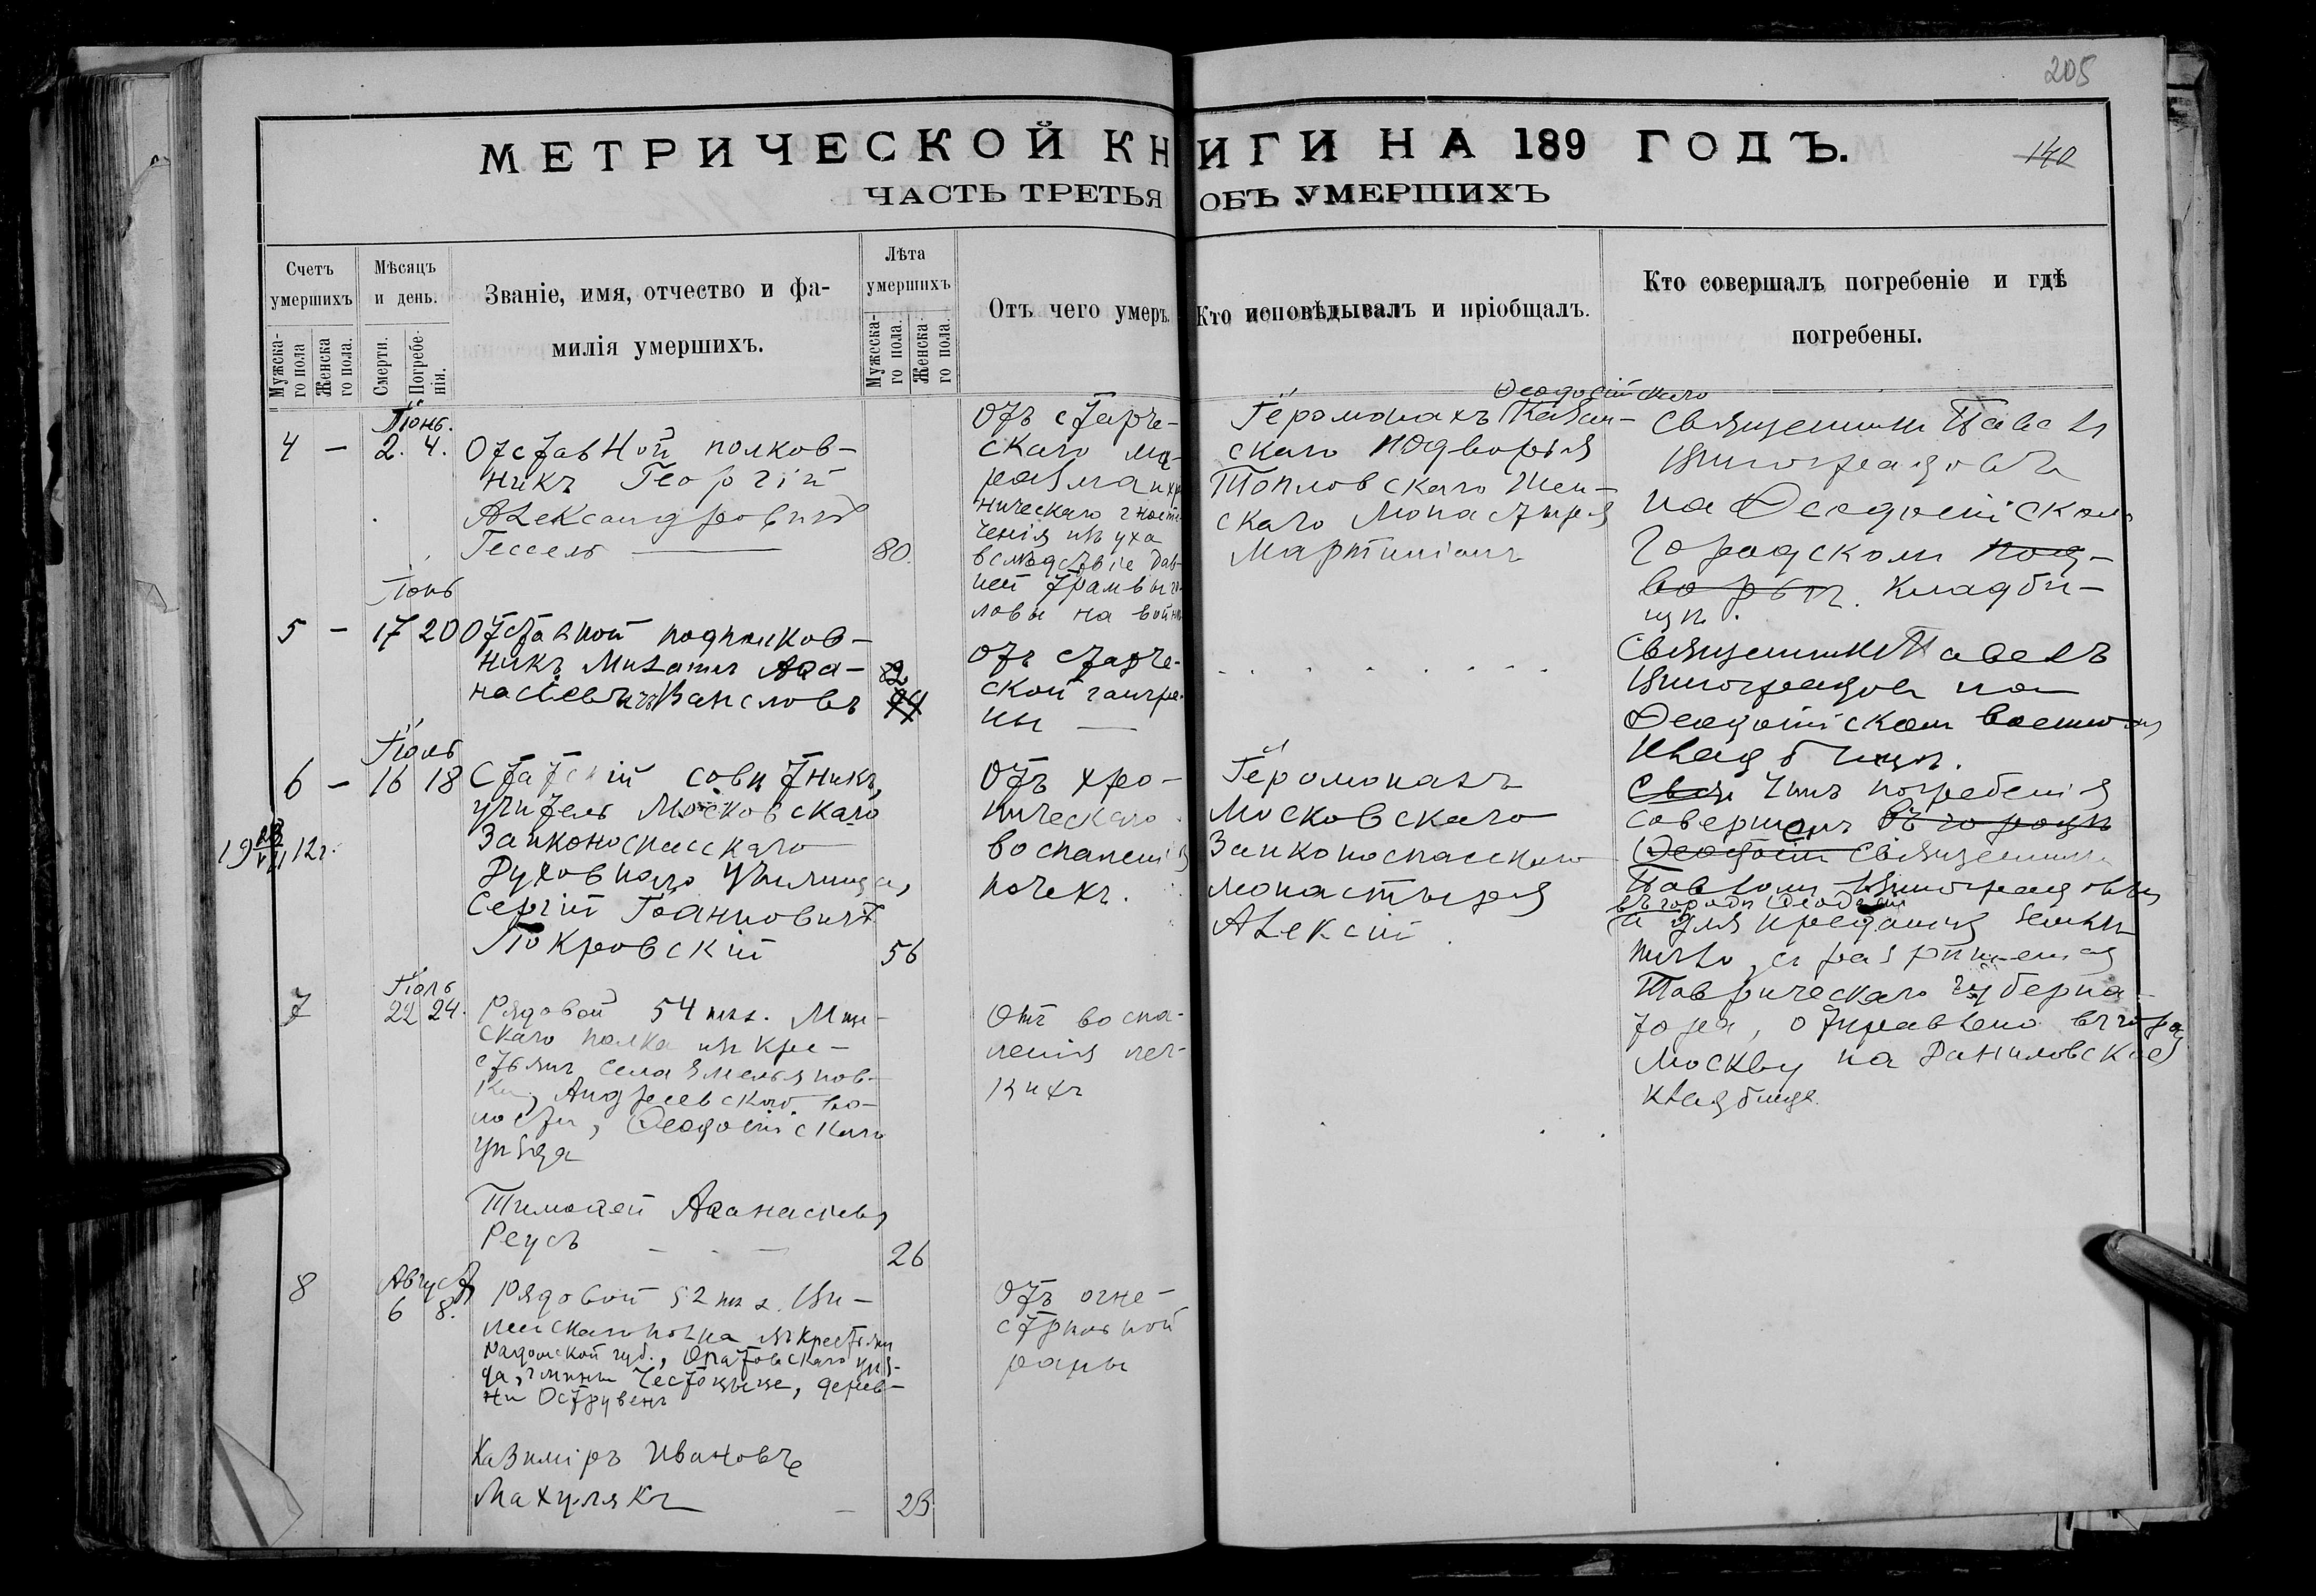 205
МЕТРИЧЕСКОЙ КНИГИ НА 189 ГОДЪ.
140
ЧАСТЬ ТРЕТЬЯ ОБЪ УМЕРШИХЪ
Счетъ умершихъ
Мужска-го пола
Женска го пола.
Мѣсяцъ и день.
Смерти.
Погребе-нія.
Званіе, имя, отчество и фа-
милія умершихъ.
Лѣта умершихъ
Мужеска-го пола.
Женска-го пола.
Отъ чего умеръ.
Кто исповѣдывалъ и пріобщалъ.
Кто совершалъ погребеніе и гдѣ
погребены.
Іюнь.
4 — 2. 4.
Отставной полков-
никъ Георгій
Александровичъ
Гессель — 80.
Отъ старче-
скаго ма-
разма и хро
ническаго гное
ченія изъ уха
вслѣдствіе дав-
ней травмы го-
ловы на войнѣ
Ѳеодосійскаго
Іеромонахъ Казан-
скаго подворья
Топловскаго Жен-
скаго Монастыря
Мартиніанъ
Священникъ Павелъ
Виноградовъ
на Ѳеодосійскомъ
Городскомъ под-
ворьѣ. Кладби-
щѣ.
Іюнь
5 — 17 20
Отставной подполков-
никъ Михаилъ Аѳа-
насіевичъ Вансловъ
82
Отъ старче-
ской гангре-
ны —
Священникъ Павелъ
Виноградовъ на
Ѳеодосійскомъ военномъ
кладбищѣ.
Іюль
6 — 16 18
19 12г.
Статскій совѣтникъ,
учитель Московскаго
Заиконоспасскаго
Духовнаго Училища,
Сергій Іоанновичъ
Покровскій 56
Отъ хро-
ническаго
воспаленія
почекъ.
Іеромонахъ
Московскаго
Заиконоспасскаго
монастыря
Алексій.
Свящ Чинъ погребенія
совершенъ въ городѣ
Ѳеодосіи Священникомъ
Павломъ Виноградовымъ
въ городѣ Ѳеодосіи
а для преданія землѣ
тѣло, съ разрѣшенія
Таврическаго Губерна-
тора, отправлено въ городъ
Москву на Даниловское
кладбище.
Іюль
7 22 24.
Рядовой 54 пѣх. Мин-
скаго полка изъ кре-
стьянъ села Емельянов-
ки, Андреевской во-
лости, Ѳеодосійскаго
уѣзда
Тимоѳей Аѳанасіевъ
Реусъ — 26
Отъ воспа-
ленія лег-
кихъ
Августъ
8 6 8.
Рядовой 52 пѣх. Ви-
ленскаго полка изъ крестьянъ
Радомской губ., Опатовскаго уѣз-
да, гмины Честоцыце, дерев-
ни Острувень
Казиміръ Ивановъ
Махулякъ — 23
Отъ огне-
стрѣльной
раны